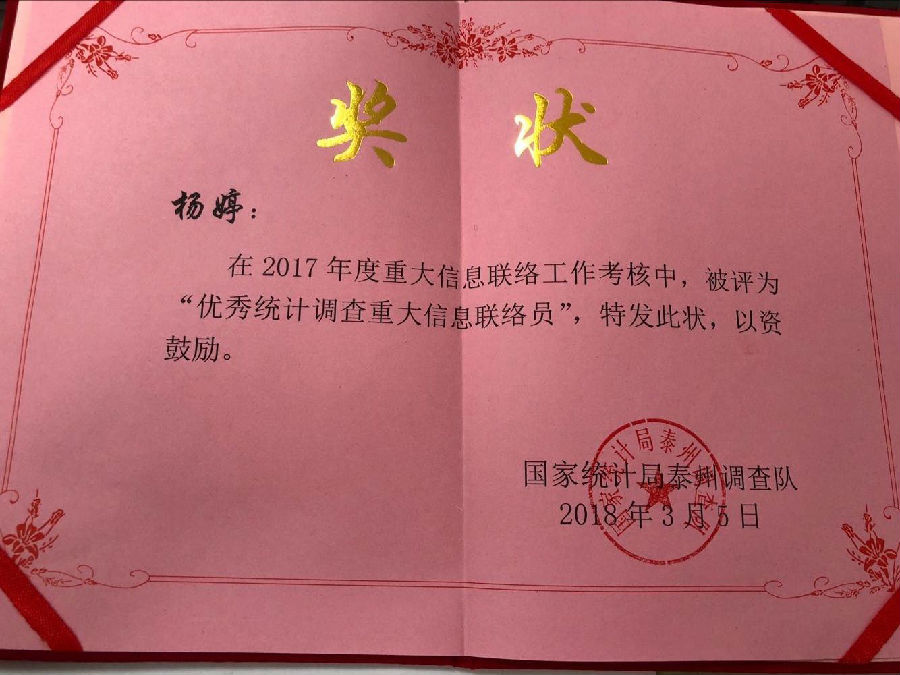 奖 状
杨婷：
在2017年度重大信息联络工作考核中，被评为
“优秀统计调查重大信息联络员”，特发此状，以资
鼓励。
国家统计局泰州调查队
2018年3月5日
国家统计局泰州调查队